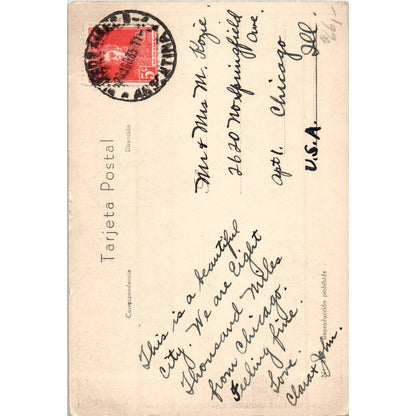 Tarjeta Postal
Correspondencia
Dirección
5c
Mr & Mrs M. Kozie
2620 No Springfield
Ave.
Apt 1. Chicago
Ill.
U.S.A.
This is a beautiful
city. We are Eight
Thousand Miles
from Chicago.
Feeling fine.
Love.
Clara & John.
Reproducción prohibida